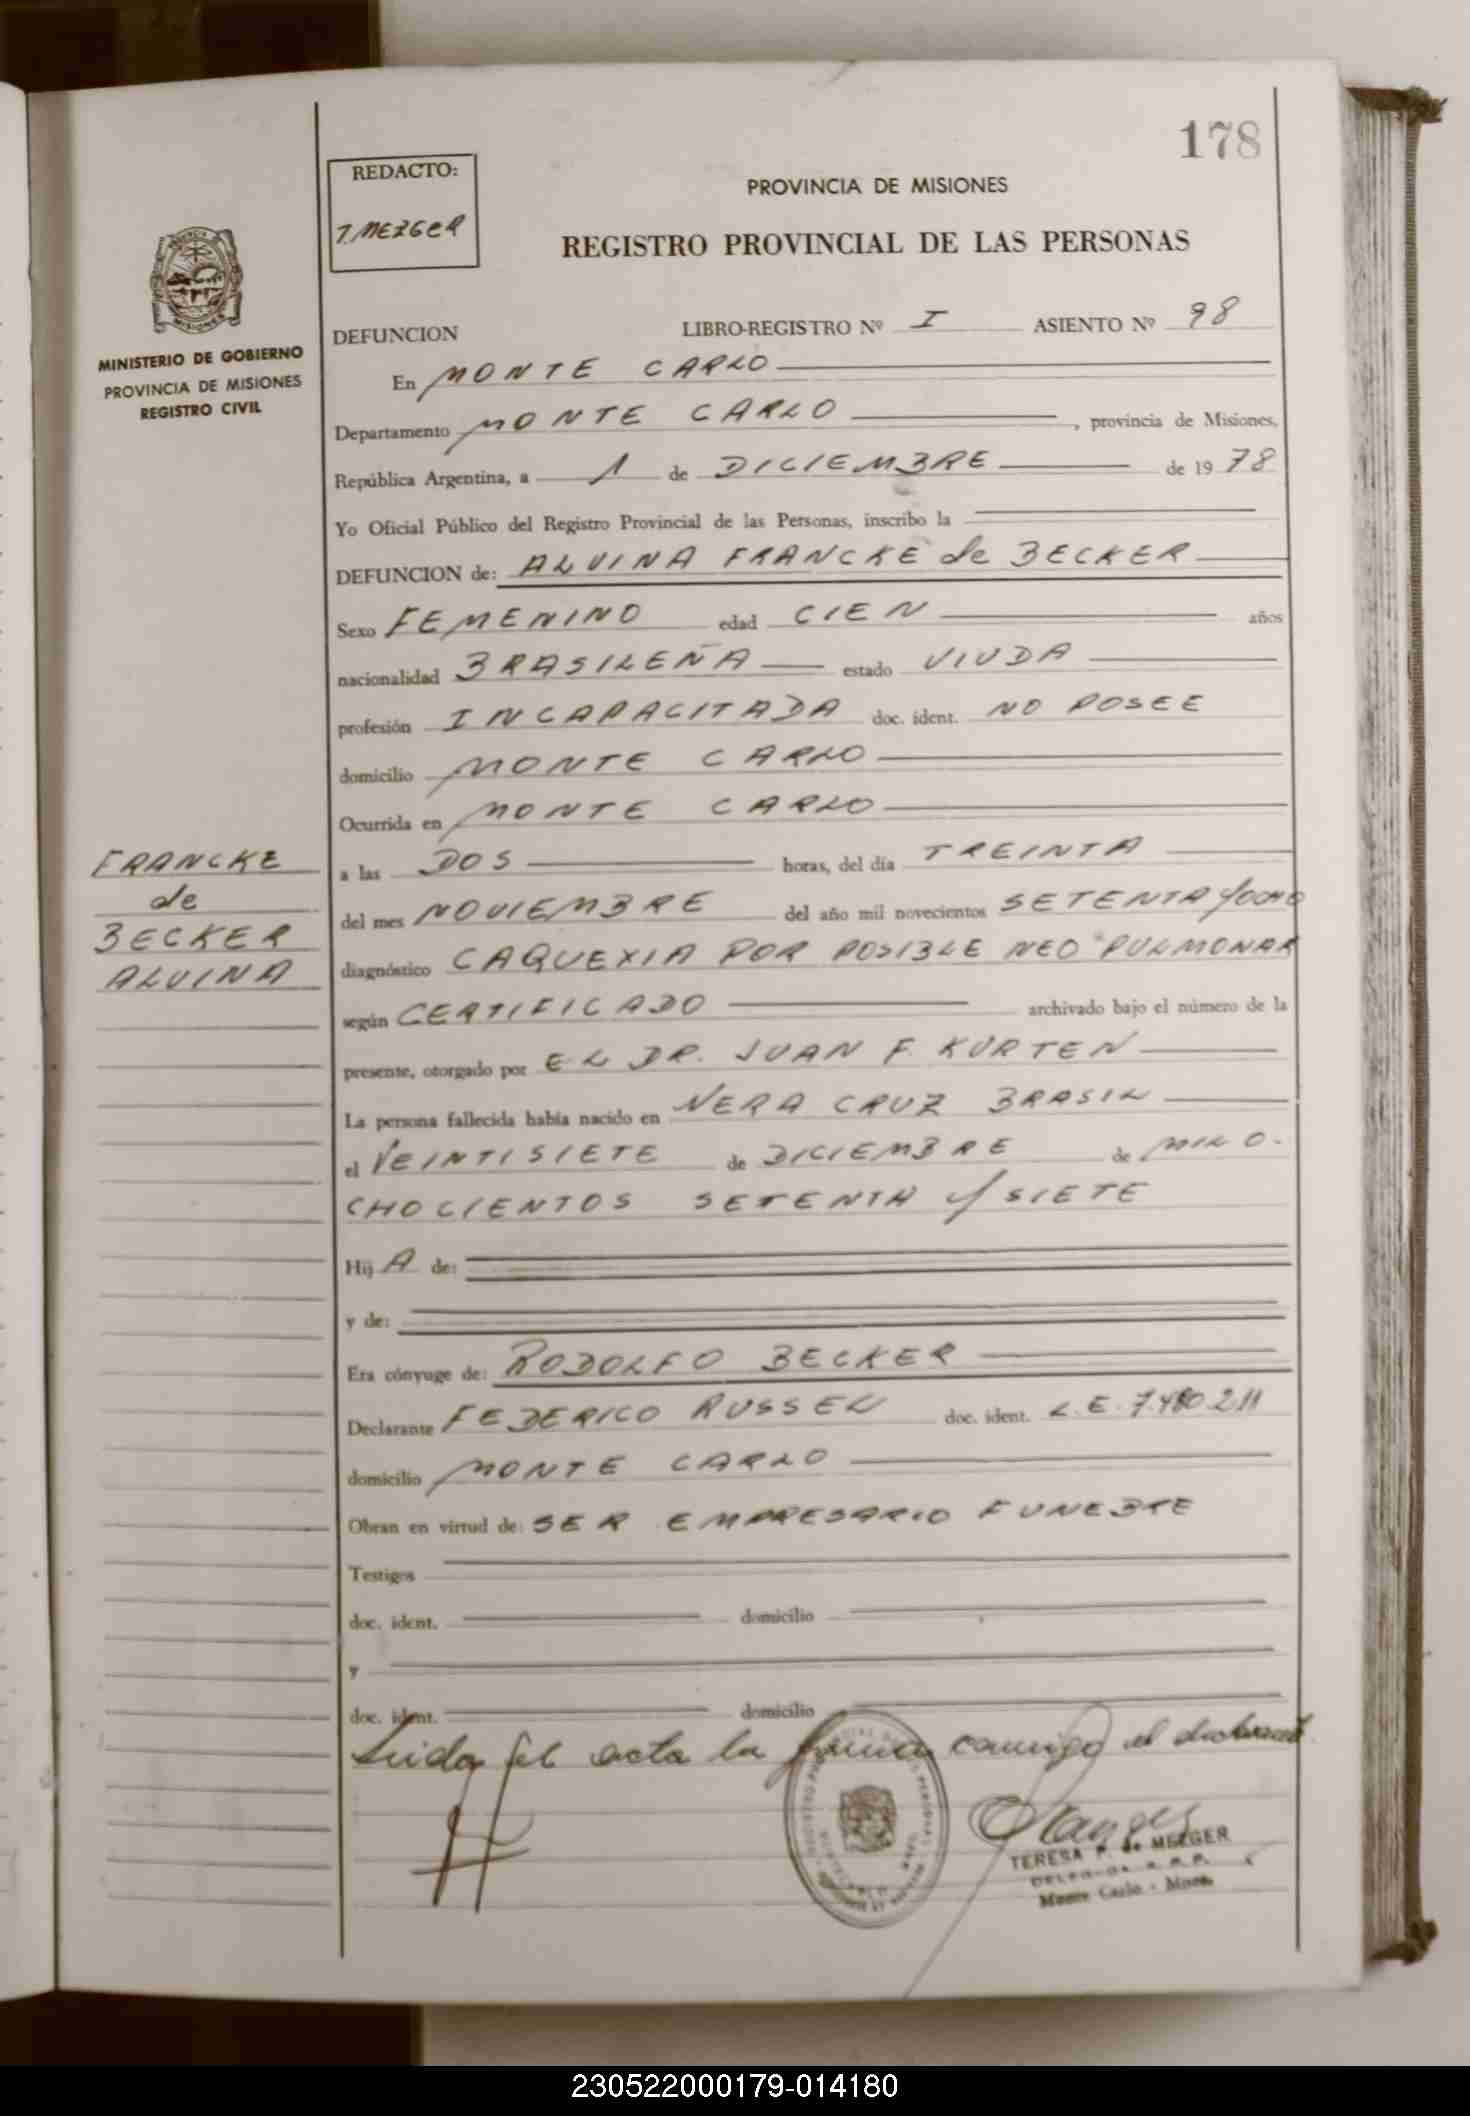 178
REDACTO:
T. MEZGER
PROVINCIA DE MISIONES
REGISTRO PROVINCIAL DE LAS PERSONAS
MISIONES
MINISTERIO DE GOBIERNO
PROVINCIA DE MISIONES
REGISTRO CIVIL
DEFUNCION LIBRO-REGISTRO Nº I ASIENTO Nº 98
En MONTE CARLO
Departamento MONTE CARLO, provincia de Misiones,
República Argentina, a 1 de DICIEMBRE de 1978
Yo Oficial Público del Registro Provincial de las Personas, inscribo la
DEFUNCION de: ALVINA FRANCKE de BECKER
Sexo FEMENINO edad CIEN años
nacionalidad BRASILEÑA estado VIUDA
profesión INCAPACITADA doc. ident. NO POSEE
domicilio MONTE CARLO
Ocurrida en MONTE CARLO
FRANCKE
de
BECKER
ALVINA
a las DOS horas, del día TREINTA
del mes NOVIEMBRE del año mil novecientos SETENTA y OCHO
diagnóstico CAQUEXIA POR POSIBLE NEO PULMONAR
según CERTIFICADO archivado bajo el número de la
presente, otorgado por EL DR. JUAN F. KURTEN
La persona fallecida había nacido en VERA CRUZ BRASIL
el VEINTISIETE de DICIEMBRE de MIL O-
CHOCIENTOS SETENTA y SIETE
Hij A de:
y de:
Era cónyuge de: RODOLFO BECKER
Declarante FEDERICO RUSSEL doc. ident. L.E. 7.480.211
domicilio MONTE CARLO
Obran en virtud de: SER EMPRESARIO FUNEBRE
Testigos
doc. ident. domicilio
y
doc. ident. domicilio
Leida el acta la firma conmigo el declarante
TERESA P. de MEZGER
Monte Carlo - Mnes.
230522000179-014180